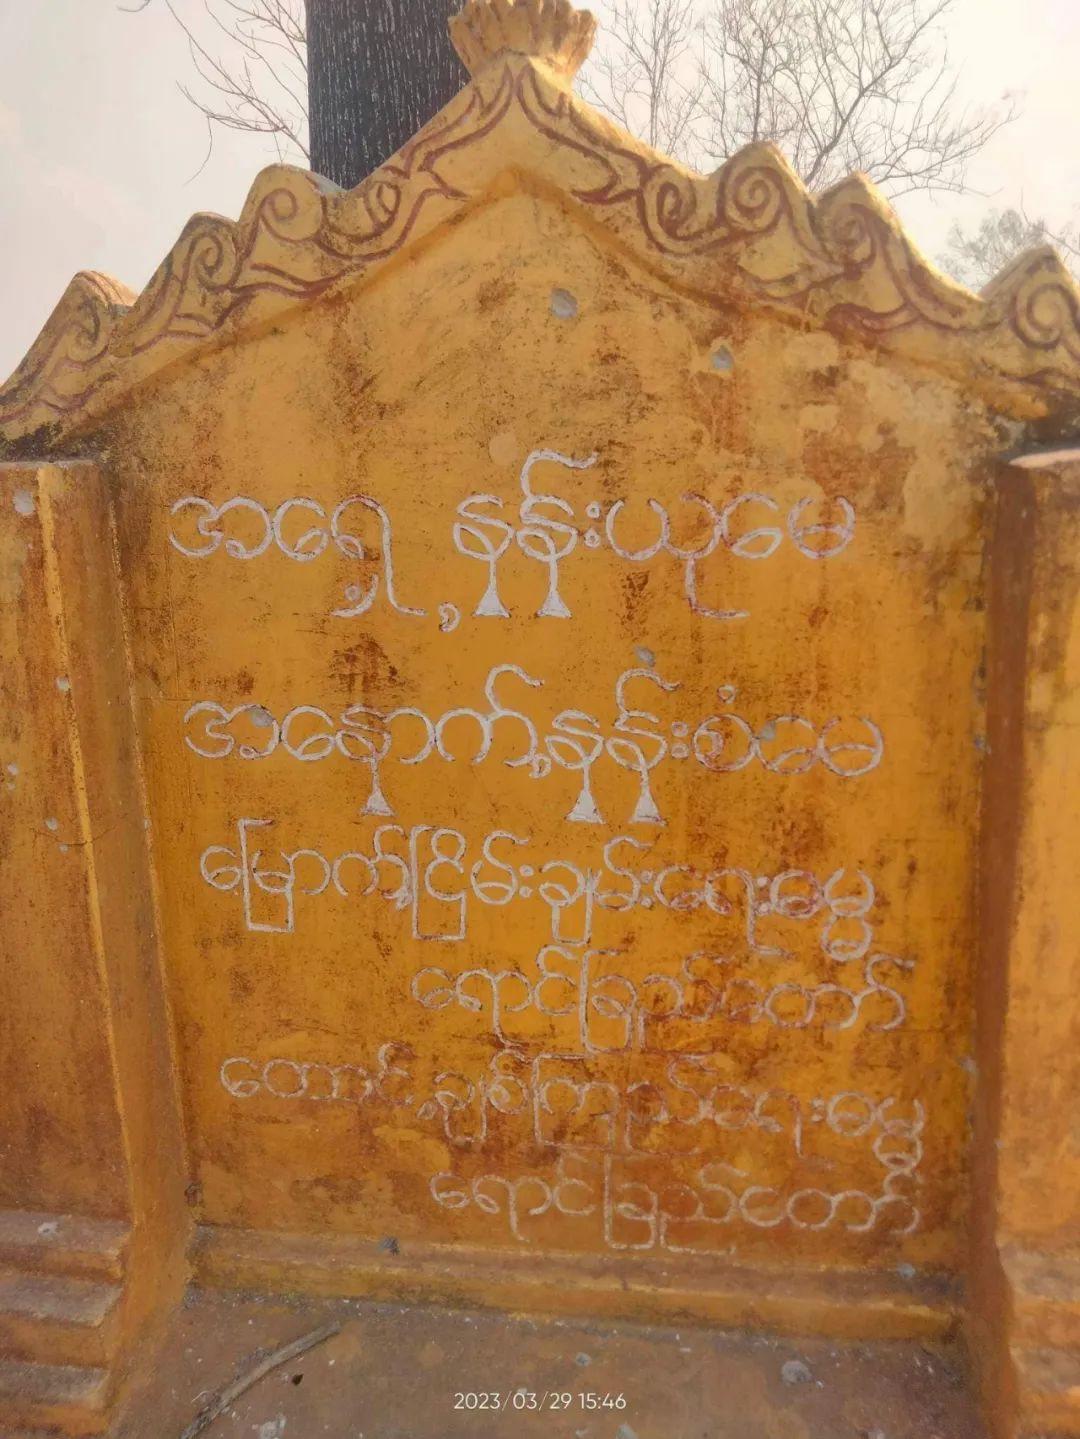 အရှေ့နန်းယူမေ
အနောက်နန်းစံမေ
မြောက်ငြိမ်းချမ်းရေးဓမ္မ
ရောင်ခြည်တော်
တောင်ချစ်ကြည်ရေးဓမ္မ
ရောင်ခြည်တော်
2023/03/29 15:46